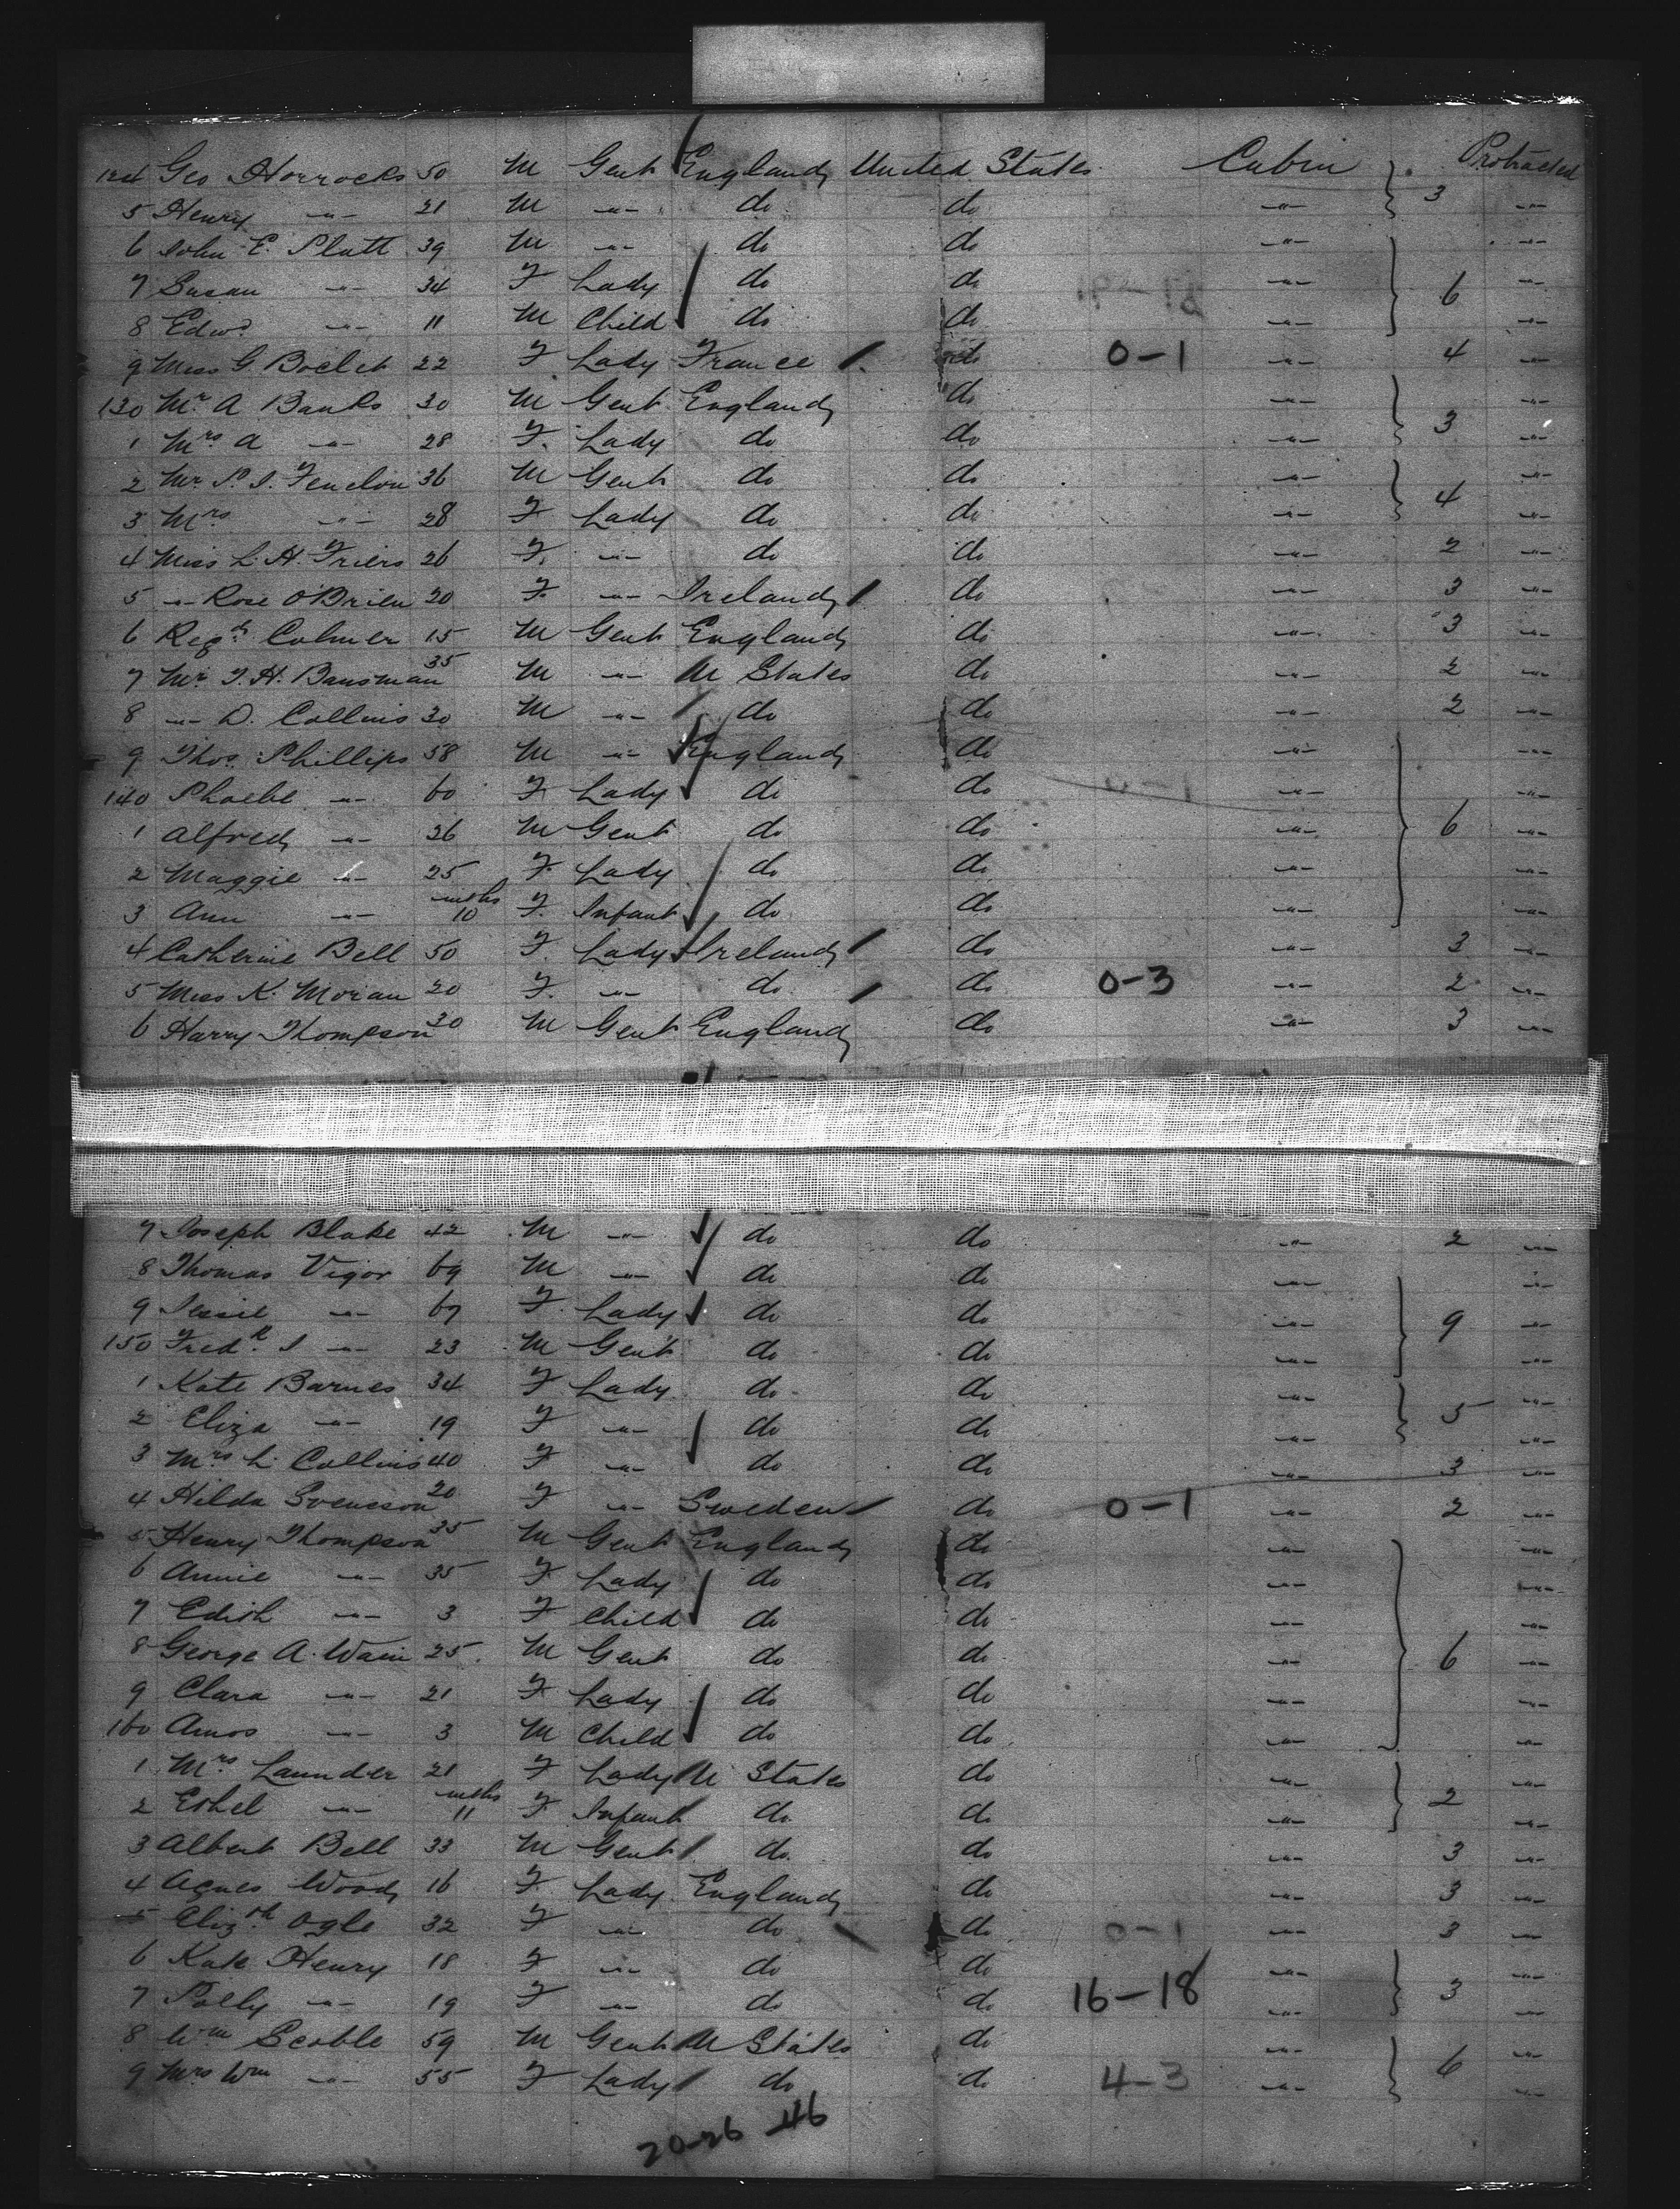 124 Geo Horrocks 50 M Gent England United States Cabin 3 Protracted
5 Henry -"- 21 M -"- do do -"- -"-
6 John E. Platt 39 M -"- do do -"- -"-
7 Susan -"- 34 F Lady do do -"- 6 -"-
8 Edwd -"- 11 M Child do do -"- -"-
9 Miss G. 22 F Lady France do 0-1 -"- 4 -"-
130 Mr. A Banks 30 M Gent England do -"- -"-
1 Mrs A -"- 28 F. Lady do do -"- 3 -"-
2 Mr. P. J. Fenelon 36 M Gent do do -"- -"-
3 Mrs -"- 28 F Lady do do -"- 4 -"-
4 Miss L. H. Friers 26 F. -"- do do -"- 2 -"-
5 -"- Rose O'Brien 20 F. -"- Ireland do -"- 3 -"-
6 Regd. Colmer 15 M Gent England do -"- 3 -"-
7 Mr. J. H. Bausman 35 M -"- U States do -"- 2 -"-
8 -"- D. Collins 30 M -"- do do -"- 2 -"-
9 Thos. Phillips 58 M -"- England do -"- -"-
140 Phoebe -"- 60 F. Lady do do 0-1 -"- -"-
1 Alfred -"- 26 M Gent do do -"- 6 -"-
2 Maggie -"- 25 F. Lady do do -"- -"-
3 Ann -"- mths 10 F. Infant do do -"- -"-
4 Catherine Bell 50 F. Lady Ireland do -"- 3 -"-
5 Miss K. Moran 20 F. -"- do do 0-3 -"- 2 -"-
6 Harry Thompson 30 M Gent England do -"- 3 -"-
7 Joseph Blake 42 M -"- do do -"- 2 -"-
8 Thomas Vigor 69 M -"- do do -"- -"-
9 Jessie -"- 67 F. Lady do do -"- 9 -"-
150 Fredk. J -"- 23 M Gent do do -"- -"-
1 Kate Barnes 34 F Lady do do -"- -"-
2 Eliza -"- 19 F -"- do do -"- 5 -"-
3 Mrs L. Collins 40 F -"- do do -"- 3 -"-
4 Hilda Svensson 20 F -"- Sweden do 0-1 -"- 2 -"-
5 Henry Thompson 35 M Gent England do -"- -"-
6 Annie -"- 35 F Lady do do -"- -"-
7 Edith -"- 3 F Child do do -"- -"-
8 George A. Wain 25. M Gent do do -"- 6 -"-
9 Clara -"- 21 F Lady do do -"- -"-
160 Amos -"- 3 M Child do do -"- -"-
1 Mrs Launder 21 F Lady U States do -"- -"-
2 Ethel -"- mths 11 F. Infant do do -"- 2 -"-
3 Albert Bell 33 M Gent do do -"- 3 -"-
4 Agnes Wood 16 F. Lady England do -"- 3 -"-
5 Elizth Ogle 32 F -"- do do 0-1 -"- 3 -"-
6 Kate Henry 18 F -"- do do -"- -"-
7 Polly -"- 19 F -"- do do 16-18 -"- 3 -"-
8 Wm Scoble 59 M Gent U States do -"- -"-
9 Mrs Wm -"- 55 F Lady do do 4-3 -"- 6 -"-
20-26 46